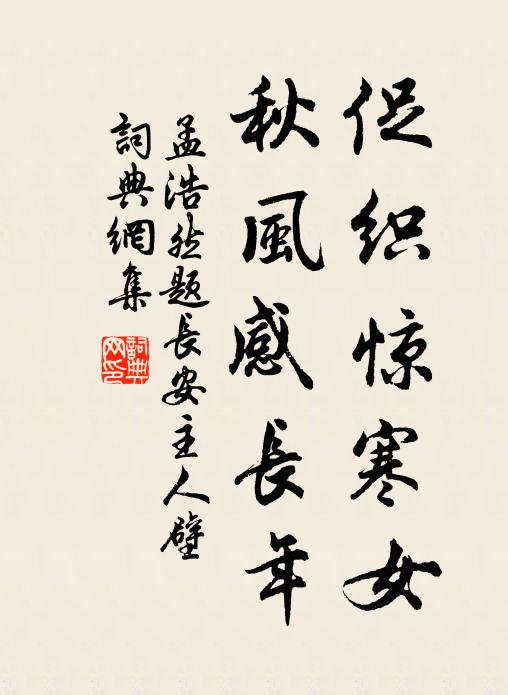 促织惊寒女
秋風感長年
孟浩然题長安主人壁
詞典網集
詞典网印